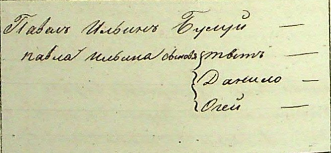 Павелъ Ильинъ Булуй —
павла Ильина сыновья { тветъ —
Данило —
Огей —